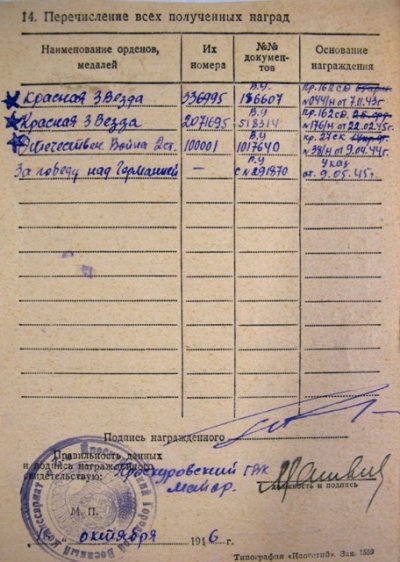 14. Перечисление всех полученных наград
Наименование орденов, медалей
Их номера
№№ документов
Основание награждения
Красная Звезда 336995 В.У. 186607 Пр. 162 СД
№044/Н от 7.11.43г
Красная Звезда 2071695 В.У. 518314 Пр. 162 СД
№176/Н от 22.02.45г.
Отечествен. Война 2 ст. 100001 В.У 1017640
№38/Н от 9.04.44г.
За победу над Германией — В.У С № 291870 Указ
от 9.05.45г.
Подпись награжденного
Правильность данных
и подпись награжденного
свидетельствую: Проскуровский ГВК
Майор.
должность и подпись
М. П.
октября 1946 г.
Типография Зак. 1559